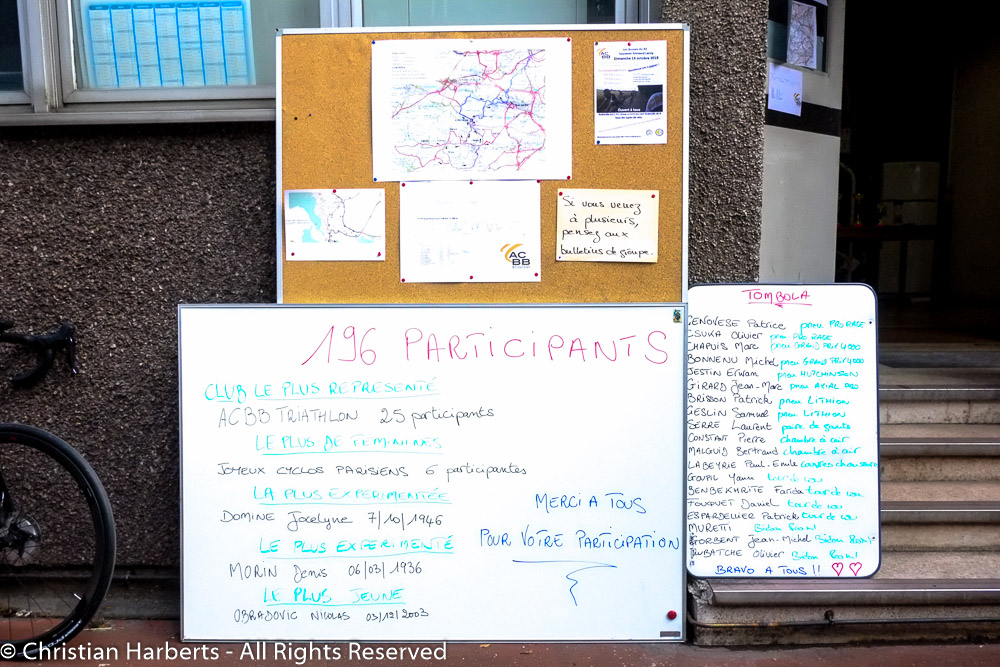 AC
BB
Dimanche 14 octobre 2018
Ouvert à tous
Si vous venez
à plusieurs,
pensez aux
bulletins de groupe.
AC
BB
196 PARTICIPANTS
CLUB LE PLUS REPRESENTÉ
ACBB TRIATHLON 25 participants
LE PLUS DE FEMININES
JOYEUX CYCLOS PARISIENS 6 participantes
LA PLUS EXPERIMENTÉE
DOMINE Jocelyne 7/10/1946
LE PLUS EXPERIMENTÉ
MORIN Denis 06/03/1936
LE PLUS JEUNE
OBRADOVIC NIKOLAS 03/12/2003
MERCI A TOUS
POUR VOTRE PARTICIPATION
TOMBOLA
GENOVESE Patrice pneu PRO RACE
CSUKA Olivier pneu PRO RACE
CHAPUIS Marc pneu GRAND PRIX 4000
BONNENU Michel pneu GRAND PRIX 4000
JESTIN Erwan pneu HUTCHINSON
GIRARD Jean-Marc pneu AXIAL PRO
BRISSON Patrick pneu LITHION
GESLIN Samuel pneu LITHION
SERRE Laurent paire de gants
CONSTANT Pierre chambre à air
MALGUID Bertrand chambre à air
LABEYRIE Paul-Emile
GOUPIL Yann tour de cou
BENBEKHRITE Farida tour de cou
FOUQUET Daniel tour de cou
ESPARDELLIER Patrick tour de cou
MURETTI Bidon
Jean-Michel Bidon
Olivier Bidon
BRAVO A TOUS !! ♡♡
© Christian Harberts - All Rights Reserved